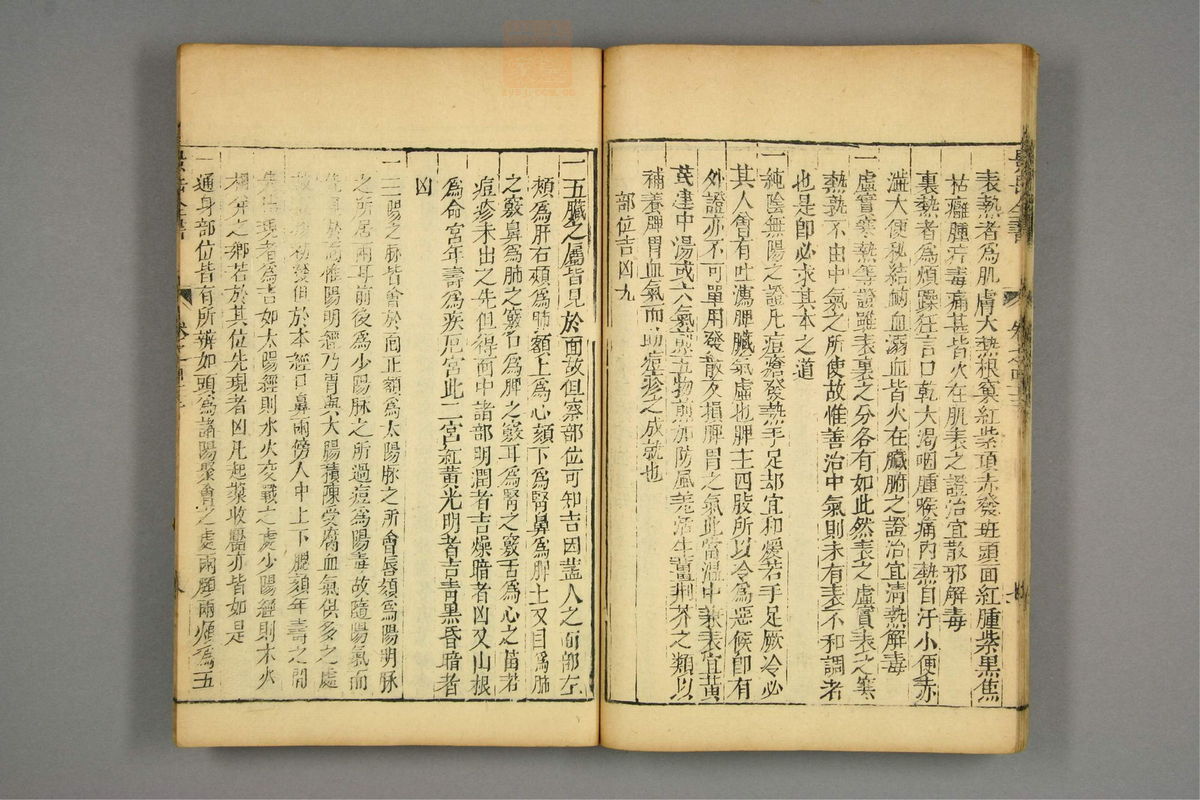 表熱者爲肌膚大熱根窠紅紫頂赤發班頭面紅腫紫黑焦
枯癰腫疔毒痛甚皆火在肌表之證治宜散邪解毒
裏熱者爲煩躁狂言口乾大渴咽腫喉痛內熱自汗小便赤
澁大便秘結衂血溺血皆火在臟腑之證治宜清熱解毒
一虛實寒熱等證雖表裏之分各有如此然表之虛實表之寒
熱孰不由中氣之所使故惟善治中氣則未有表不和調者
也是卽必求其本之道
一純陰無陽之證凡痘瘡發熱手足却宜和煖若手足厥冷必
其人曾有吐瀉脾臟氣虛也脾主四肢所以冷爲惡候卽有
外證亦不可單用發散友損脾胃之氣此當溫中兼表宜黃
茋建中湯或六氣煎五物煎加防風羗活生薑荆芥之類以
補養脾胃血氣而助痘疹之成就也
部位吉凶九
一五臟之屬皆見於面故但察部位可知吉凶蓋人之面部左
頰爲肝右頰爲肺額上爲心頦下爲腎鼻爲脾土又目爲肝
之竅鼻爲肺之竅口爲脾之竅耳爲腎之竅舌爲心之苗若
痘疹未出之先但得面中諸部明潤者吉燥暗者凶又山根
爲命宮年壽爲疾厄宮此二宮紅黃光明者吉青黑昏暗者
凶
一三陽之脉皆會於面正額爲太陽脉之所會唇頦爲陽明脉
之所居兩耳前後爲少陽脉之所過痘爲陽毒故隨陽氣而
於面惟陽明經乃胃與大腸積陳受腐血氣俱多之處
初發但於本經口鼻兩傍人中上下腮頦年壽之間
先現者爲吉如太陽經則水火交戰之處少陽經則木火
相并之鄉若於其位先現者凶凡起發收靨亦皆如是
一通身部位皆有所辨如頭爲諸陽聚會之處兩頤兩頰爲五
景岳全書
卷之四十三